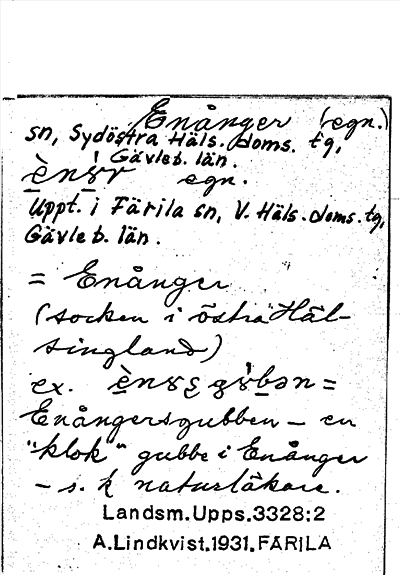 Enånger (egn.)
sn, Sydöstra Häls. doms. tg,
Gävleb. län.
egn.
Uppt. i Färila sn, V. Häls. doms. tg,
Gävleb. län.
= Enånger
(socken i östra Häl-
singland)
ex. =
Enångersgubben – en
"klok" gubbe i Enånger
– s. k naturläkare.
Landsm. Upps. 3328:2
A. Lindkvist. 1931. FÄRILA